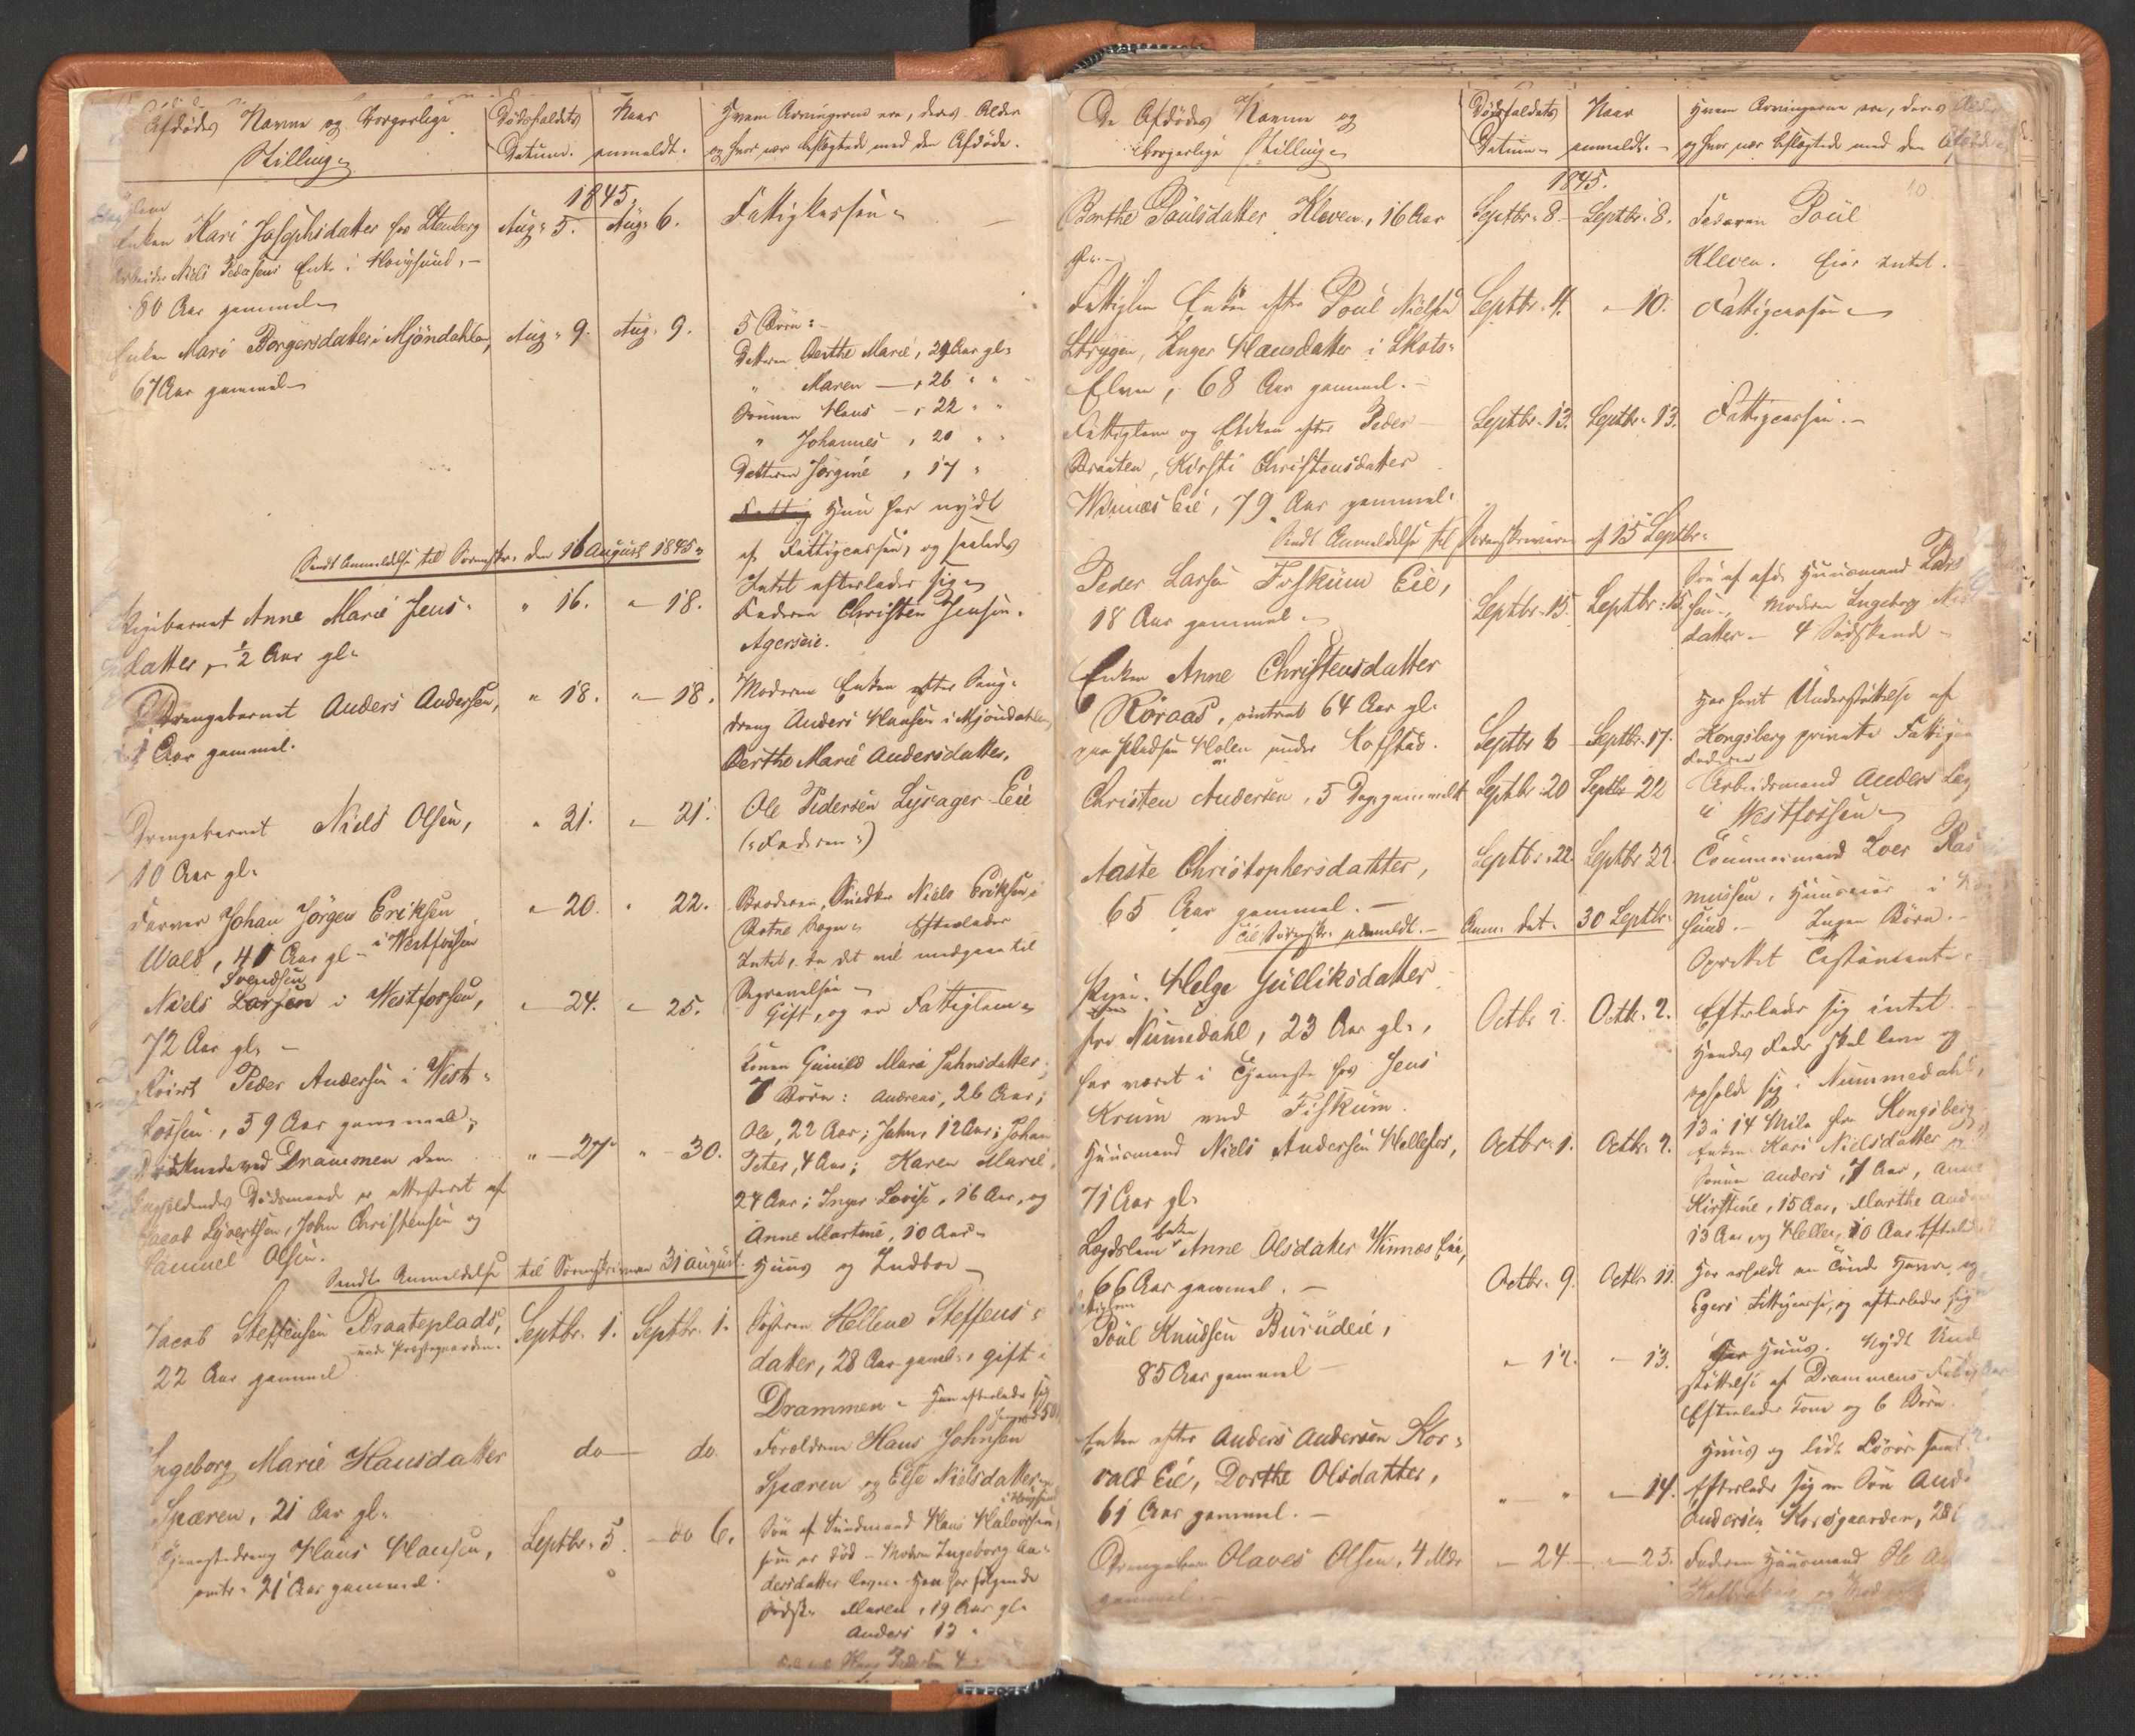 Afdødes Navne og borgerlige
Stilling
Dødsfaldets
Datum.
Naar
anmeldt.
Hvem Arvingerne ere, deres Alder
og hvor nær beslægtede med den Afdøde.
1845.
Enken Kari Josephsdatter fra Stenberg
Arbeider Niels Pedersens Enke i Hougsund, -
80 Aar gammel
Aug: 5.
Aug: 6.
Fattigkassen
Enken Mari Børgersdatter i Mjöndahlen,
67 Aar gammel
Aug: 9.
Aug: 9.
5 Børn:
Datteren Berthe Marie, 29 Aar gl:
" Maren —, 26 " "
Sønnen Hans —, 22 " "
" Johannes, 20 " "
Datteren Jørgine, 17 "
Hun har nydt
af Fattigcassen, og saaledes
Intet efterlader sig
Sendt Anmeldelse til Sorenskr: den 16 August 1845
Pigebarnet Anne Marie Jens-
datter, ½ Aar gl:
" 16.
" 18.
Faderen Christen Jensen
Agerseie.
Drengebarnet Anders Andersen,
1 Aar gammel.
" 18.
" 18.
Moderen Enken efter
dreng Anders Hansen i Mjöndahlen
Berthe Marie Andersdatter.
Drengebarnet Niels Olsen,
10 Aar gl:
" 21.
" 21.
Ole Pedersen Lysager Eie
(: Faderen :)
Farver Johan Jörgen Eriksen
Wald, 41 Aar gl: i Westfossen
" 20.
" 22.
Broderen, Snedker Niels Eriksen i
Botne Sogn. Efterlader
Intet, da det vil medgaae til
Begravelsen
Svendsen
Niels Larsen i Westfossen,
72 Aar gl: -
" 24.
" 25.
Gift, og er Fattiglem
Peder Andersen i West-
fossen, 59 Aar gammel,
druknede ved Drammen den
Dödsmaade er attesteret af
Jacob Syvertsen, John Christensen og
Samuel Olsen.
" 27
" 30.
Konen Gunild Marie Jahnsdatter;
7 Børn: Andreas, 26 Aar;
Ole, 22 Aar; Jahn, 12 Aar; Johan
Peter, 4 Aar; Karen Marie,
24 Aar; Inger Lovise, 16 Aar, og
Anne Martine, 10 Aar
Huus og Indboe
Sendt Anmeldelse til Sorenskriveren 31 August.
Jacob Steffensen Braateplads,
under Præstegaarden.
22 Aar gammel
Septbr. 1.
Septbr. 1.
Søsteren Hellene Steffens-
datter, 28 Aar gaml:, gift i
Drammen. Han efterlader sig
Ingeborg Marie Hansdatter
Spæren, 21 Aar gl:
do
do
Forældrene Hans Johnsen
Spæren og Else Nielsdatter
Tjenestedreng Hans Hansen,
omtr: 21 Aar gammel.
Septbr. 5
do 6.
Søn af Sundmand Hans Halvorsen,
i Hougsund
som er død - Moderen Ingeborg An-
dersdatter lever. Han har følgende
Södsk: Maren, 19 Aar gl:
Anders 13 "
De Afdødes Navne og
borgerlige Stilling
Dødsfaldets
Datum
Naar
anmeldt.
Hvem Arvingerne ere, deres Alder
og hvor nær beslægtede med den Afdøde
10
1845.
Berthe Paulsdatter Kleven, 16 Aar
gl:
Septbr. 8
Septbr. 8.
Faderen Poul
Kleven. Eier Intet.
Fattiglem Enken efter Poul Nielsen
Strygen, Inger Hansdatter i Skots-
Elven, 68 Aar gammel. -
Septbr. 4.
" 10.
Fattigcassen
Fattiglem og Enken efter Peder
Braaten, Kirsti Christensdatter
Winnæs Eie, 79 Aar gammel.
Septbr. 13.
Septbr. 13.
Fattigcassen. -
Sendt Anmeldelse til Sorenskriveren af 15 Septbr:
Peder Larsen Fiskum Eie,
18 Aar gammel
Septbr. 15.
Septbr. 15.
Søn af afd: Huusmand Lars
sen, Moderen Ingeborg
datter - 4 Södskende
Enken Anne Christensdatter
Röraas, omtrent 64 Aar gl:
paa Pladsen Holen under Hofstad.
Septbr 6
Septbr. 17.
Har havt Understøttelse af
Kongsberg private
Christen Andersen, 5 Dage gammel
Septbr. 20
Septbr 22
Faderen
Arbeidsmand Anders
i Westfossen
Aaste Christophersdatter,
65 Aar gammel. -
Septbr. 22.
Septbr 22.
Tømmermand Iver Ras-
mussen, Huuseier i
sund. - Ingen Børn. -
Oprettet Testamente.
Til Sorenskr. anmeldt. - Anm: dat: 30 Septbr:
Pigen Helge Gulliksdatter
fra Nummedahl, 23 Aar gl:,
har været i Tjeneste hos Jens
Krum ved Fiskum.
Octbr 2.
Octbr. 2.
Efterlader sig intet
Hendes Fader skal leve og
opholde sig i Nummedahl,
13 à 14 Mile fra Kongsberg
Huusmand Niels Andersen Hellefos,
71 Aar gl:
Octbr. 1.
Octbr. 2.
Enken Kari Nielsdatter
Sønnen Anders, 7 Aar, Anne
Kirstine, 15 Aar, Marthe
13 Aar, og Hellen, 10 Aar
Lægdslem Enken Anne Olsdatter Winnæs Eie,
66 Aar gammel. -
Octbr. 9.
Octbr. 11.
Har erholdt en Tønde Havre og
Egers Fattigcasse, og efterlader sig
Poul Knudsen Burudeie,
85 Aar gammel -
" 12.
" 13.
Huus. Nydt Und
støttelse af Drammens
Efterlader Kone og 6 Børn.
Enken efter Anders Andersen Kor-
vald Eie, Dorthe Olsdatter,
61 Aar gammel. -
" "
" 14.
Huus og lidt Løsøre samt
Efterlader sig en Søn And
Andersen Korsgaarden, 28
Drengebarn Olaves Olsen, 4 Mdr
gammel. -
" 24.
" 25.
Faderen Huusmand Ole